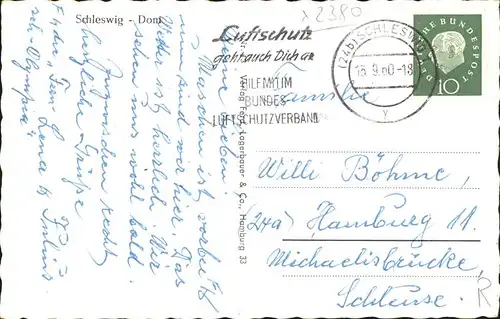 Schleswig - Dom
x2380
Luftschutz
geht auch Dich an
HILF MIT IM
BUNDES-
LUFTSCHUTZVERBAND
(24b) SCHLESWIG 1
16.9.60-18
y
DEUTSCHE BUNDESPOST
10
Verlag Ferd. Lagerbauer & Co., Hamburg 33
Meine Lieben!
Maschen ist vorbei &
nun sind wir hier. Das
Wetter ist herrlich. Wir
sehen uns wohl bald.
Inzwischen recht
herzliche Grüße
Familie
Willi Böhme,
(24a) Hamburg 11.
Michaelisbrücke,
Schleuse.
R